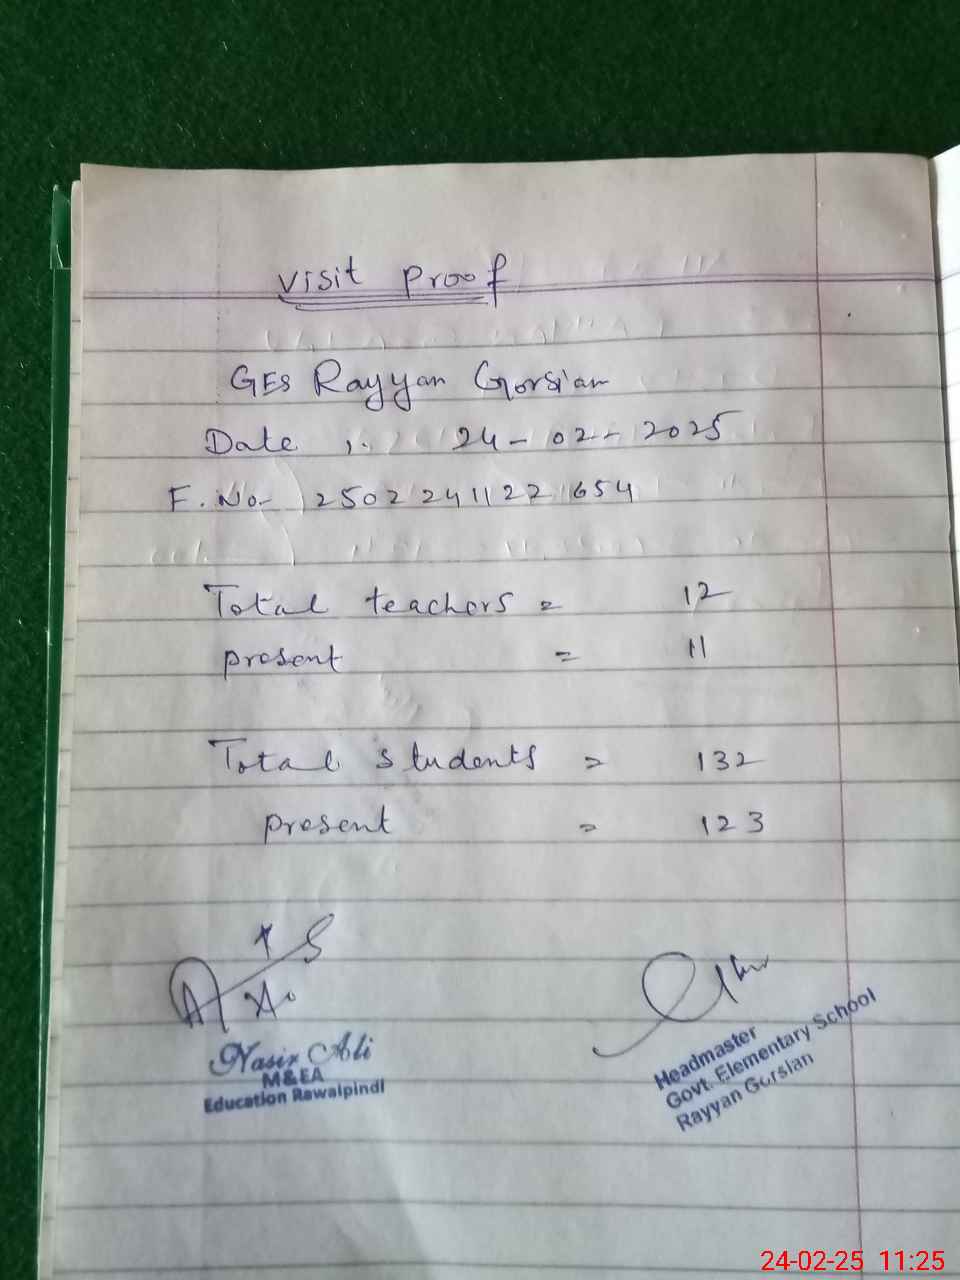 Visit Proof
GES Rayyan Gorsian
Date :. 24-02-2025
F.No- 25022411221654
Total teachers = 12
present = 11
Total students = 132
present = 123
Nasir Ali
M&EA
Education Rawalpindi
Headmaster
Govt. Elementary School
Rayyan Gorsian
24-02-25 11:25